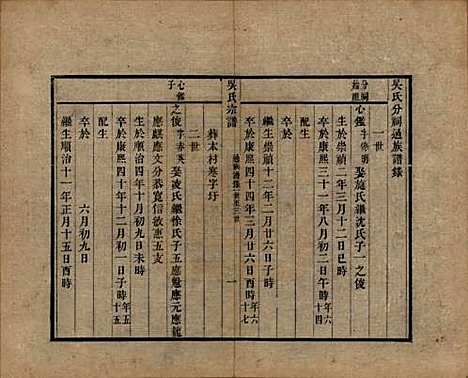 吳氏分祠通族譜錄
一世
分祠
始祖
心鑑 字修明 娶施氏繼沈氏子一之俊
生於崇禎二年三月十二日巳時
卒於康熙三十一年八月初三日申時 年六十四
配生
卒於
繼生崇禎十二年二月廿六日子時
卒於康熙四十四年三月廿六日酉時 年六十七
葬本村寒字圩
吳氏宗譜
一
二世
心鑑
子
之俊 字 娶凌氏繼徐氏子五應魁應元應龍
應麒應文分恭寬信敏惠五支
生於順治四年十月初九日未時
卒於康熙四十年十二月初一日子時 年五十五
配生
卒於 六月初九日
繼生順治十一年正月十五日酉時